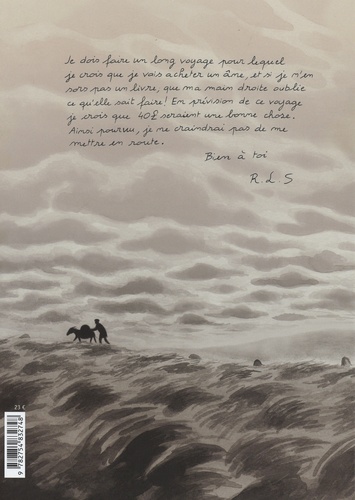 Je dois faire un long voyage pour lequel
je crois que je vais acheter un âne, et si je n'en
sors pas un livre, que ma main droite oublie
ce qu'elle sait faire! En prévision de ce voyage
je crois que 40£ seraient une bonne chose.
Ainsi pourvu, je ne craindrai pas de me
mettre en route.
Bien à toi
R.L.S
23 €
9 782754 832748